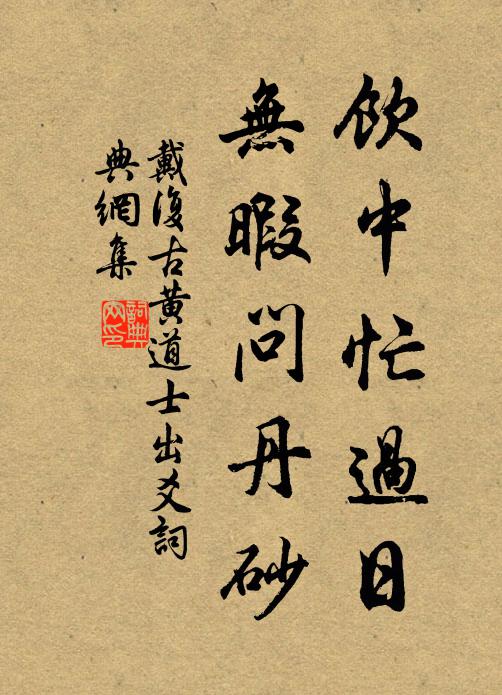 飲中忙過日
無暇問丹砂
戴復古黃道士出爻詞
典網集
詞典網印